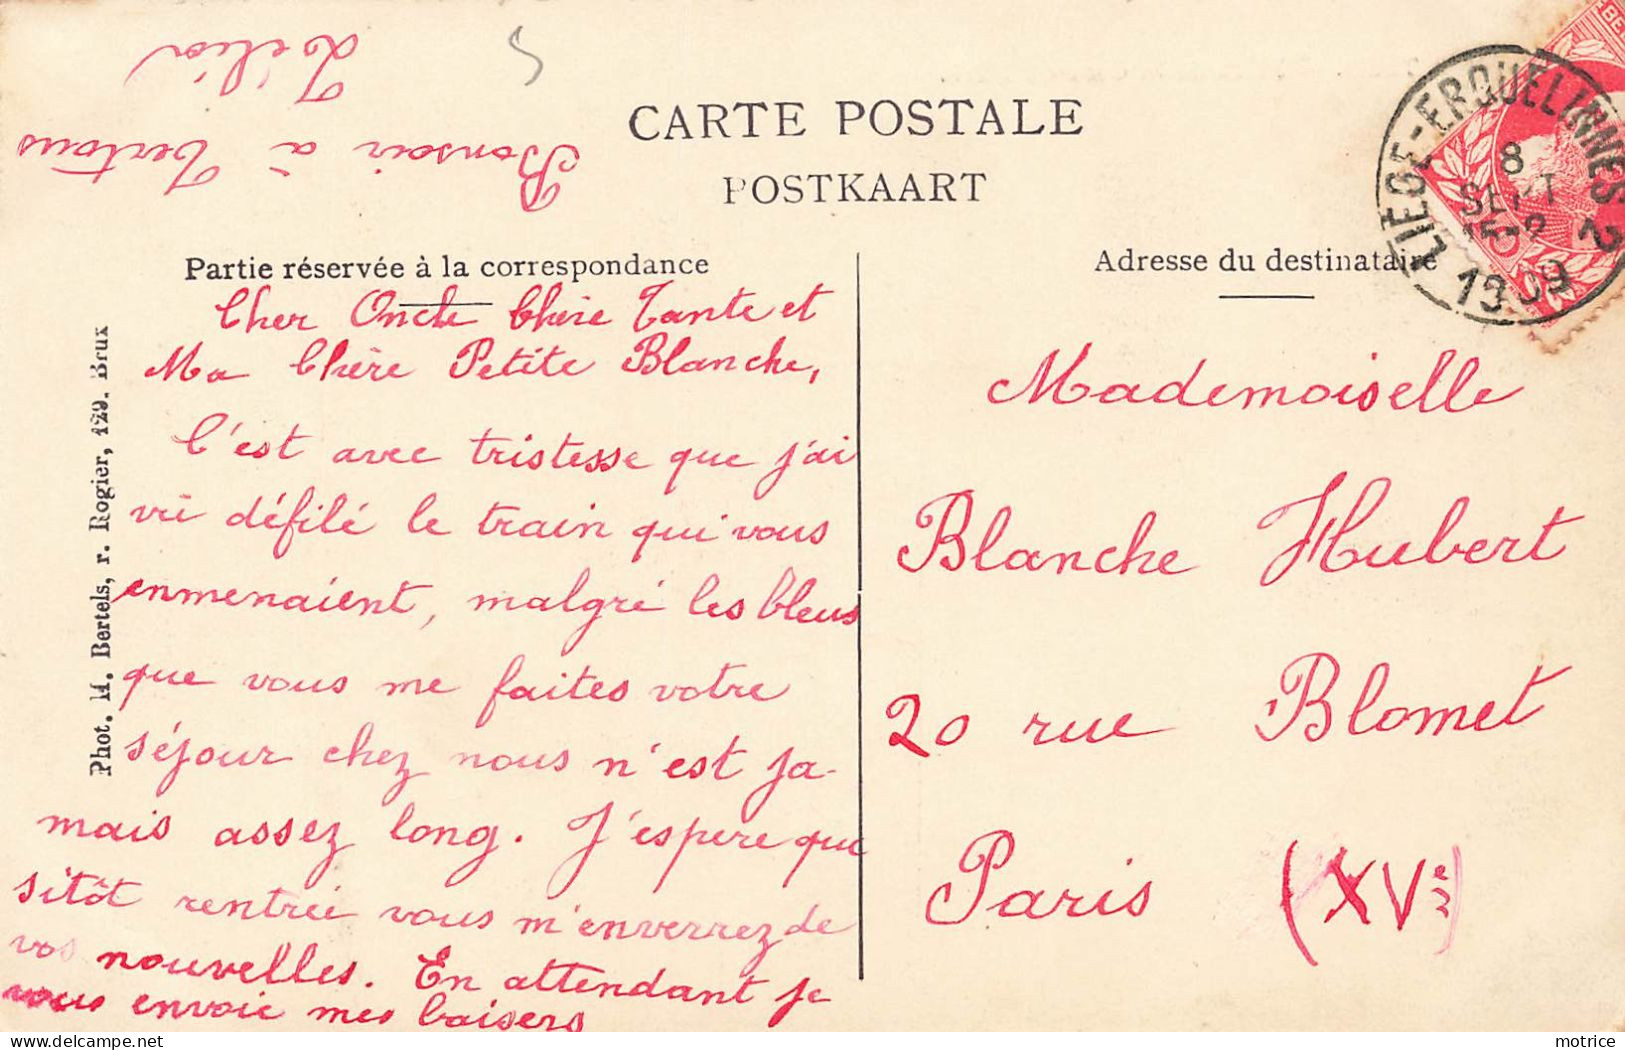 Bonsoir à Tertous
Lélia
CARTE POSTALE
POSTKAART
Partie réservée à la correspondance
Adresse du destinataire
LIEGE-ERQUELINNES 2
8
SEPT
1909
Phot. M. Bertels, r. Rogier, 129. Brux
Cher Oncle Chère Tante et
Ma Chère Petite Blanche,
C'est avec tristesse que j'ai
vû défilé le train qui vous
enmenaient, malgré les bleus
que vous me faites votre
séjour chez nous n'est ja-
mais assez long. J'espère que
sitôt rentrée vous m'enverrez de
vos nouvelles. En attendant je
vous envoie mes baisers
Mademoiselle
Blanche Hubert
20 rue Blomet
Paris (XVe)
motrice